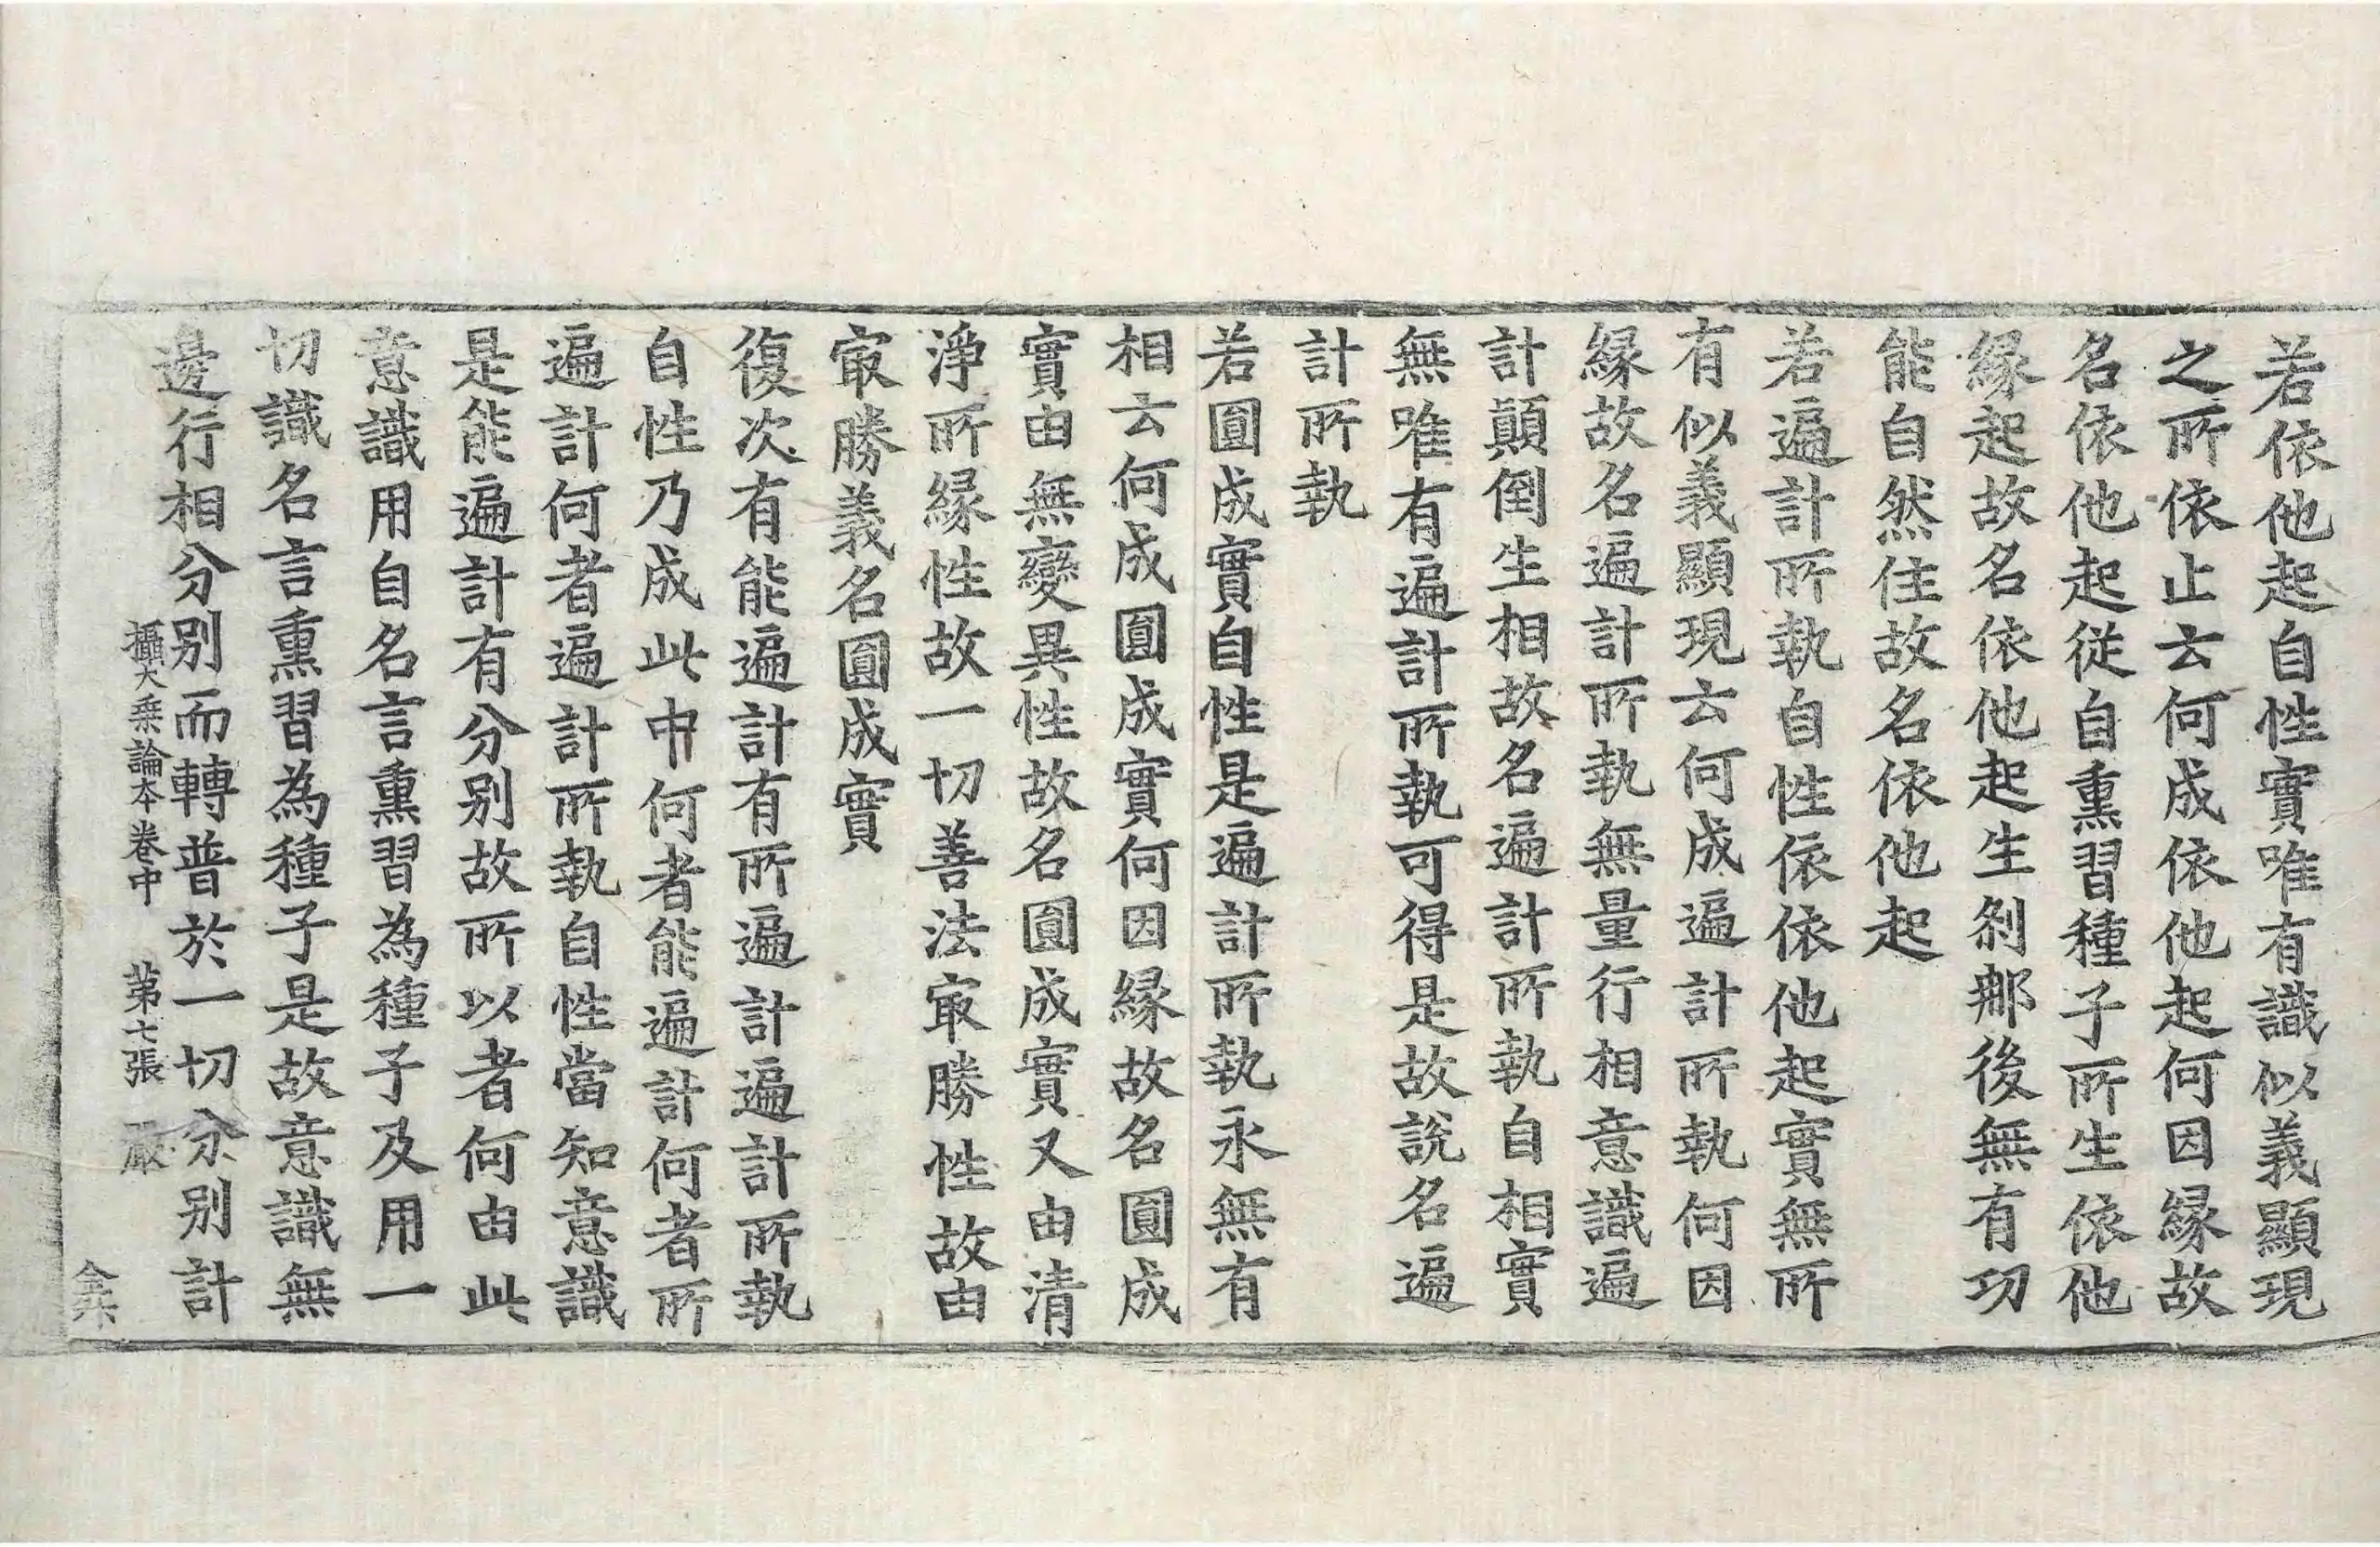 若依他起自性實唯有識似義顯現
之所依止云何成依他起何因緣故
名依他起從自熏習種子所生依他
緣起故名依他起生剎那後無有功
能自然住故名依他起
若遍計所執自性依依他起實無所
有似義顯現云何成遍計所執何因
緣故名遍計所執無量行相意識遍
計顛倒生相故名遍計所執自相實
無唯有遍計所執可得是故說名遍
計所執
若圓成實自性是遍計所執永無有
相云何成圓成實何因緣故名圓成
實由無變異性故名圓成實又由清
淨所緣性故一切善法㝡勝性故由
㝡勝義名圓成實
復次有能遍計有所遍計遍計所執
自性乃成此中何者能遍計何者所
遍計何者遍計所執自性當知意識
是能遍計有分別故所以者何由此
意識用自名言熏習為種子及用一
切識名言熏習為種子是故意識無
邊行相分別而轉普於一切分別計
攝大乗論本卷中 苐七張